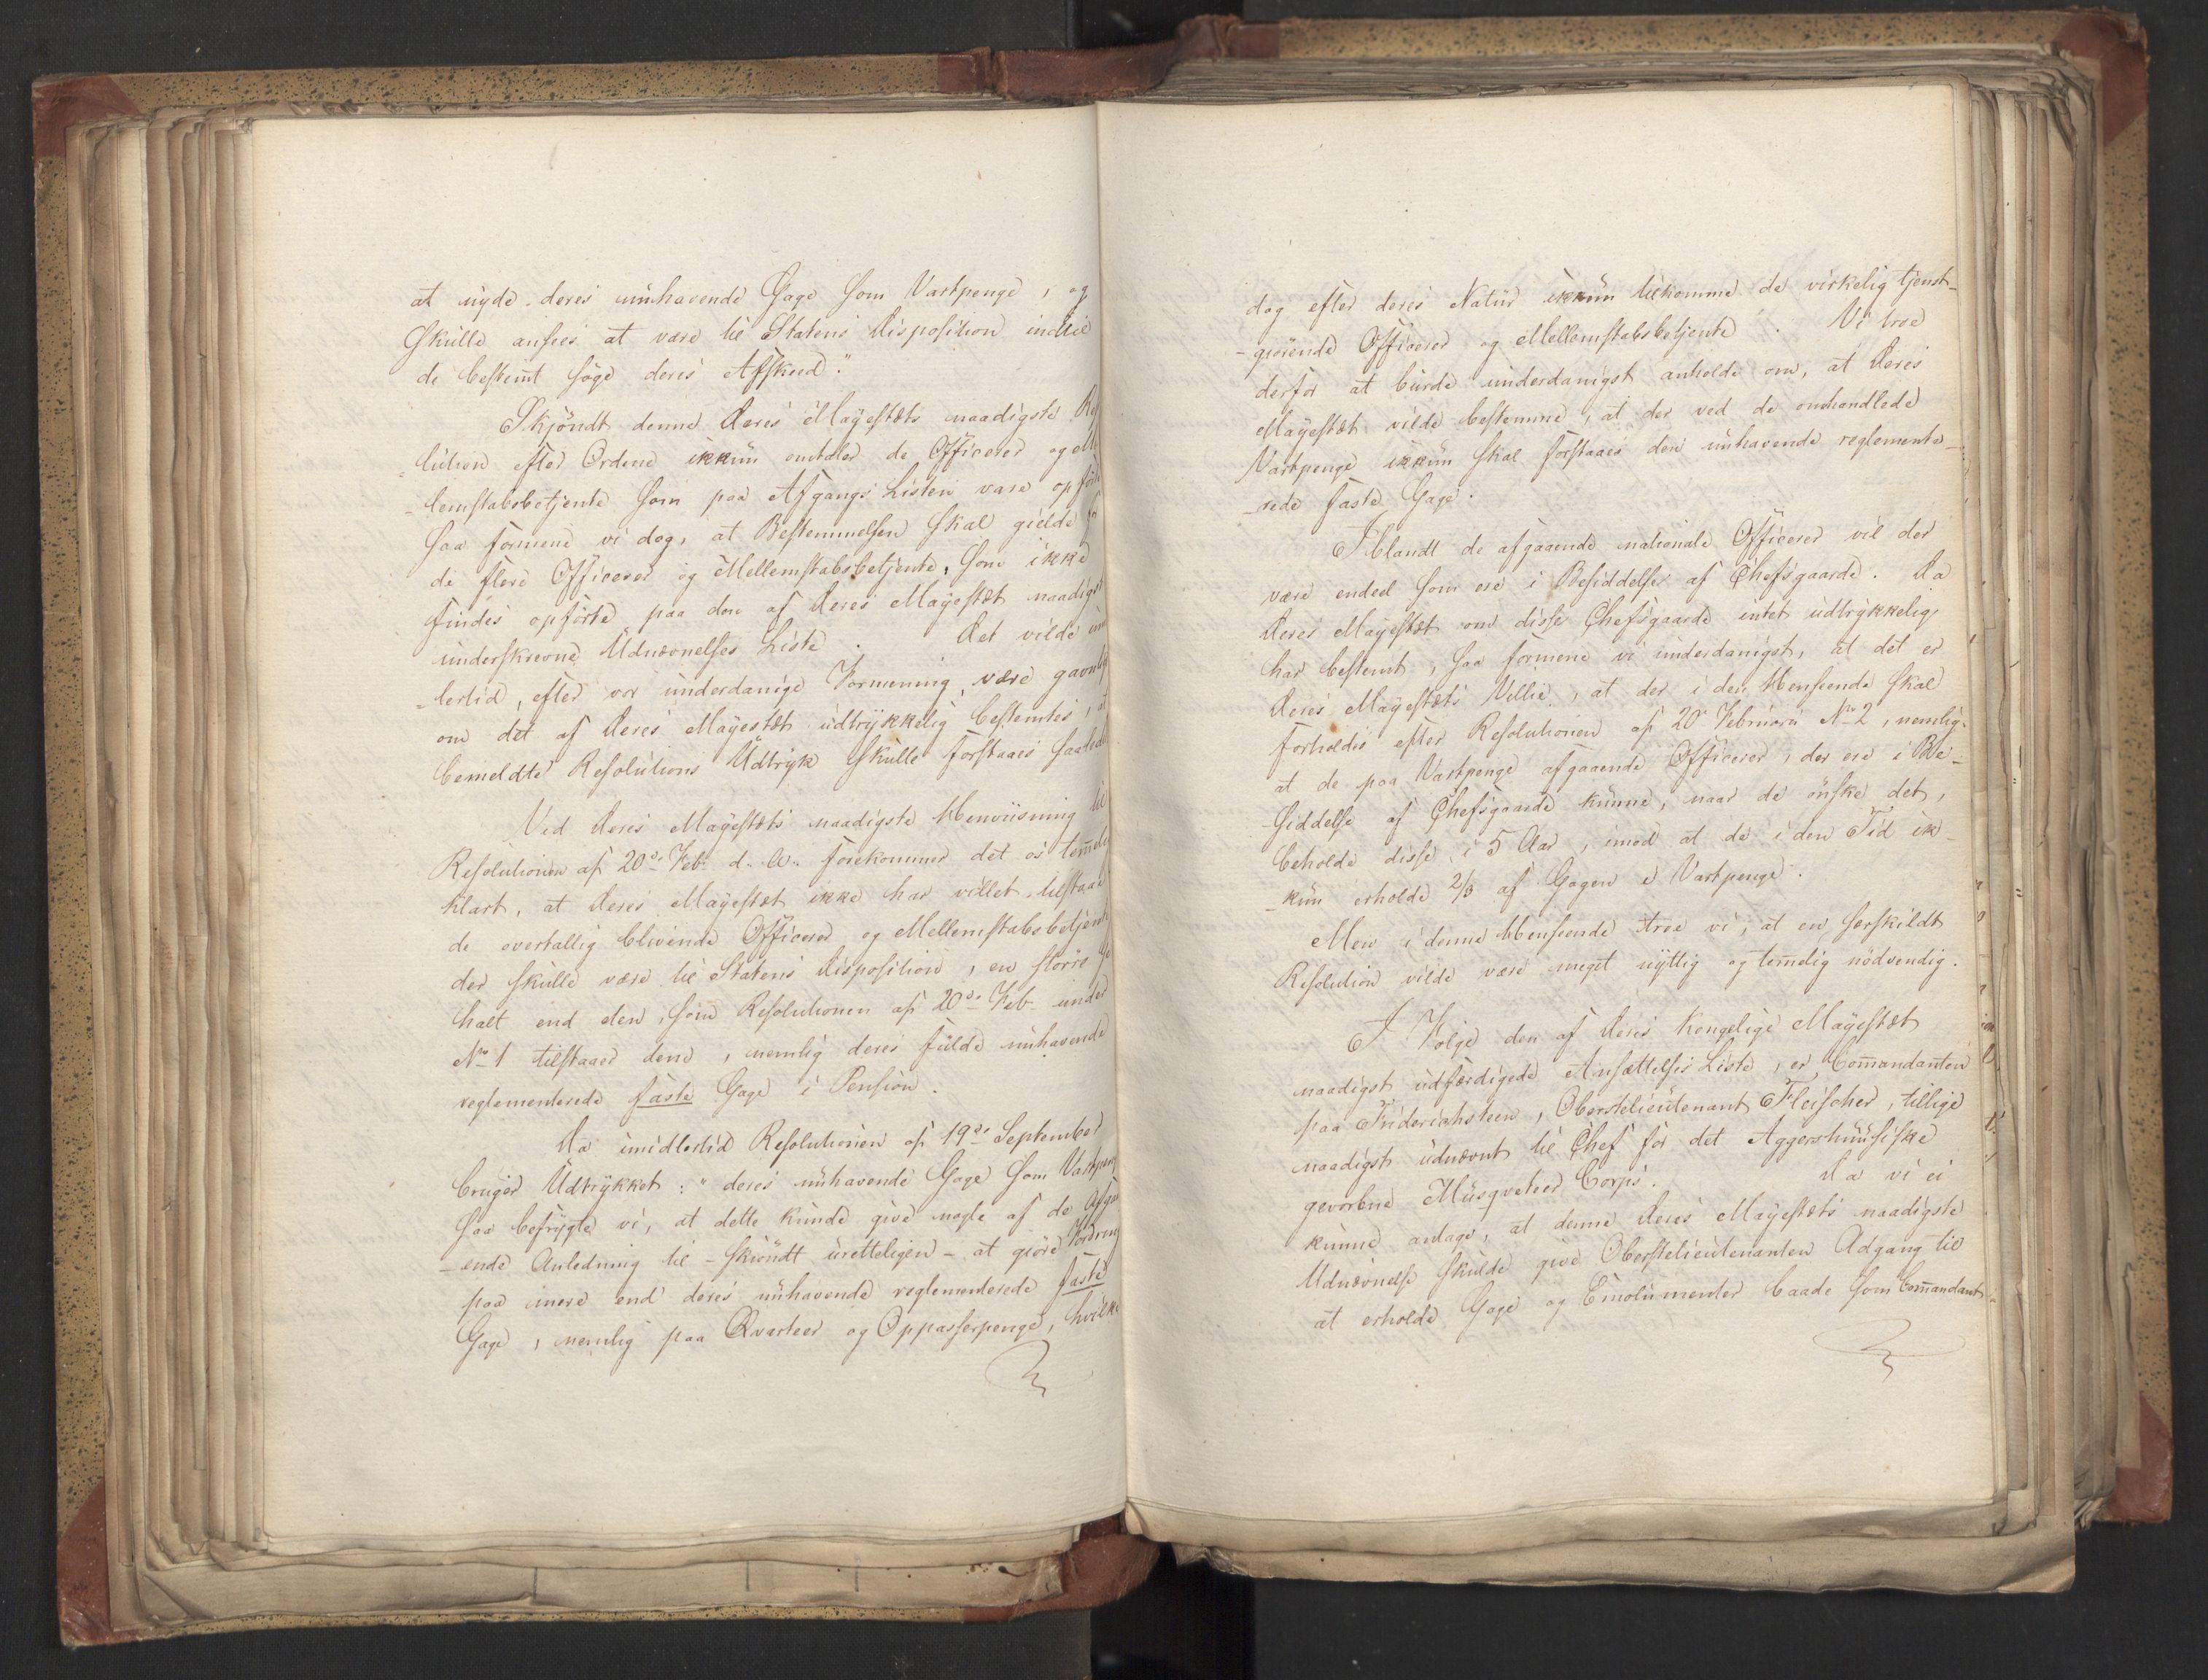 at nyde deres unhavende Gage som Vartpenge, og
skulle ansees at være til Statens Disposition indtil
de bestemt søge deres Afskeed."
Skjöndt denne Deres Mayestæts naadigste Res
lution efter Ordene ikkun omtaler de Officerer og Mel
-lemstabsbetjente som paa Afgangs Listen vare opförte
saa formene vi dog, at Bestemmelsen skal gielde for
de flere Officerer og Mellemstabsbetjente, som ikke
findes opförte paa den af Deres Mayestæt naadigst
underskrevne Udnævnelses Liste. Det vilde im
-lertid, efter vor underdanige Formening, være gavnlig
om det af Deres Mayestæt udtrykkelig bestemtes, at
bemeldte Resolutions Udtryk skulle forstaaes saaled
Ved Deres Mayestæts naadigste Henviisning til
Resolutionen af 20de Feb: d. A. forekommer det os temel
klart, at Deres Mayestæt ikke har villet tilstaae
de overtallig blivende Officerer og Mellemstabsbetjent
der skulle være til Statens Disposition, en större
halt end den, som Resolutionen af 20de Feb. under
No 1 tilstaaer dem, nemlig deres fulde unhavende
reglementerede faste Gage i Pension.
Da imidlertid Resolutionen af 19de September
bruger Udtrykket: "deres unhavende Gage som Vartpeng
saa befrygte vi, at dette kunde give nogle af de Afga
-ende Anledning til - skiöndt uretteligen - at giöre Fordring
paa mere end deres unhavende reglementerede faste
Gage, nemlig paa Qvarteer og Oppasserpenge, hvilke
dog efter deres Natur ikkun tilkomme de virkelig tjenst-
-giörende Officerer og Mellemstabsbetjente. Vi troe
derfor at burde underdanigst anholde om, at Deres
Mayestæt vilde bestemme, at der ved de omhandlede
Vartpenge ikkun skal forstaaes den unhavende reglemente-
-rede faste Gage.
Iblandt de afgaaende nationale Officerer vil der
være endeel som ere i Besiddelse af Chefsgaarde. Da
Deres Mayestæt om disse Chefsgaarde intet udtrykkelig
har bestemt, saa formene vi underdanigst, at det er
Deres Mayestæts Villie, at der i den Henseende skal
forholdes efter Resolutionen af 20de Februarii No 2, nemlig
at de paa Vartpenge afgaaende Officerer, der ere i Be-
-siddelse af Chefsgaarde kunne, naar de önske det,
beholde disse i 5 Aar, imod at de i den Tid ik-
-kun erholde 2/3 af Gagen i Vartpenge.
Men i denne Henseende troe vi, at en særskildt
Resolution vilde være meget nyttig og temelig nödvendig.
I Fölge den af Deres Kongelige Mayestæt
naadigst udfærdigede Ansættelses Liste, er Commandanten
paa Friderichsteen, Oberstelieutenant Fleischer, tillige
naadigst udnævnt til Chef for det Aggershuusiske
gevorbne Musqveteer Corps. Da vi ei
kunne antage, at denne Deres Mayestæts naadigste
Udnævnelse skulde give Oberstelieutenanten Adgang til
at erholde Gage og Emolumenter baade som Commandant